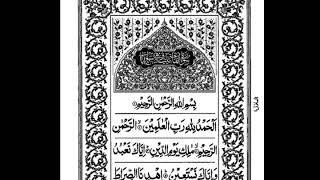 بِسْمِ اللهِ الرَّحْمٰنِ الرَّحِيْمِ
اَلْحَمْدُ لِلّٰهِ رَبِّ الْعٰلَمِيْنَ ۙ الرَّحْمٰنِ
الرَّحِيْمِ ۙ مٰلِكِ يَوْمِ الدِّيْنِ ؕ اِيَّاكَ نَعْبُدُ
وَاِيَّاكَ نَسْتَعِيْنُ ؕ اِهْدِنَا الصِّرَاطَ